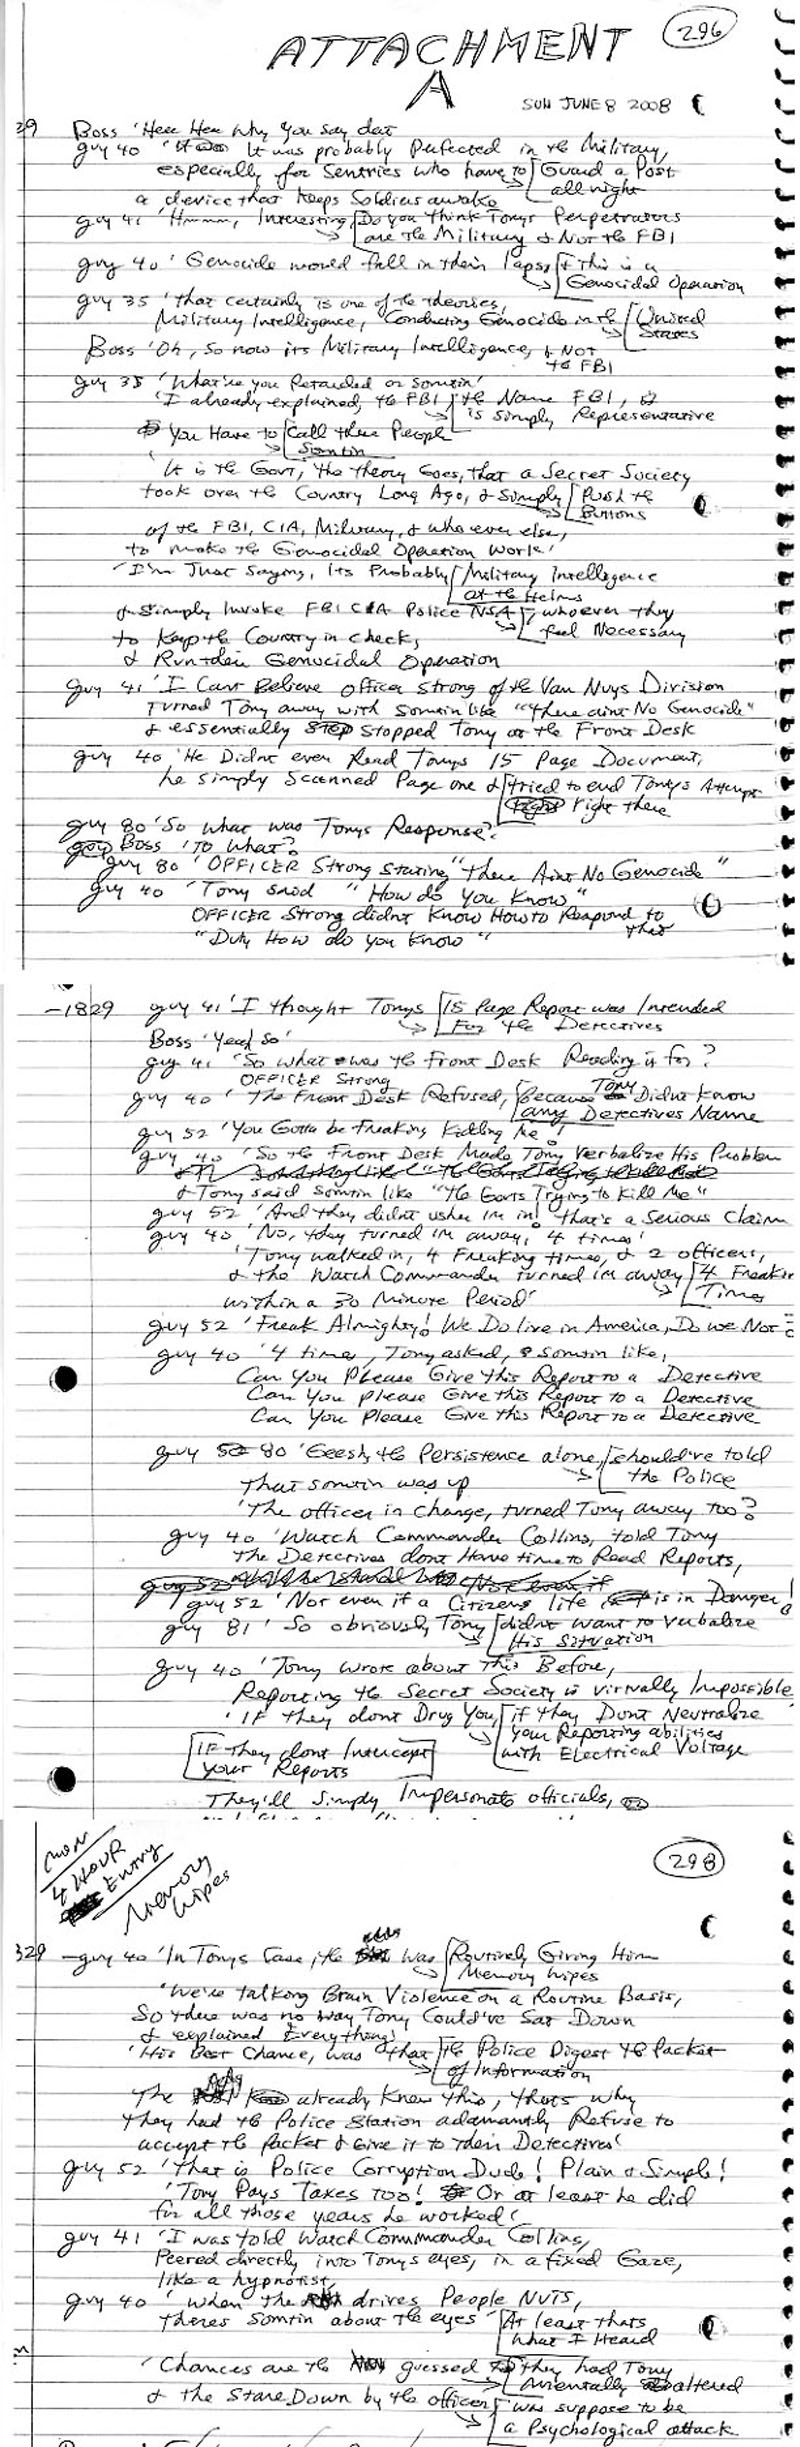 ATTACHMENT
A
296
SUN JUNE 8 2008
29 Boss 'Hee Hee Why you say dat
guy 40 'It was It was probably Perfected in the Military,
especially for Sentries who have to Guard a Post
all night
a device that keeps Soldiers awake
guy 41 'Hmmm, Interesting, Do you think Tonys Perpetrators
are the Military & Not the FBI
guy 40 'Genocide would fall in their laps, & This is a
Genocidal Operation
guy 35 'That certainly is one of the theories,
Military Intelligence, Conducting Genocide in the United
States
Boss 'Oh, So now its Military Intelligence, & Not
the FBI
guy 35 'What're you Retarded or Somtin'
'I already explained, the FBI, the Name FBI,
is simply Representative
You Have to call these People
Somtin
'It is the Govt, the theory Goes, that a Secret Society
took over the Country Long Ago, & Simply Push the
Buttons
of the FBI, CIA, Military, & who ever else,
to make the Genocidal Operation Work'
'I'm Just Saying, Its Probably Military Intelligence
at the Helms
& Simply Invoke FBI CIA Police NSA, whoever they
feel Necessary
to Keep the Country in check,
& Run their Genocidal Operation
guy 41 'I Cant Believe Officer Strong of the Van Nuys Division
turned Tony away with Somtin like "There aint No Genocide"
& essentially Stopped Tony at the Front Desk
guy 40 'He Didnt even Read Tonys 15 Page Document,
he simply Scanned Page one & tried to end Tonys Attempt
right there
guy 80 'So what was Tonys Response?'
Boss 'To What?
guy 80 'OFFICER Strong stating "There Aint No Genocide"
guy 40 'Tony said "How do you Know"
OFFICER Strong didnt Know How to Respond to
that
"Duh How do you Know"
-1829 guy 41 'I thought Tonys 15 Page Report was Intended
For the Detectives
Boss 'Yeah So'
guy 41 'So what was the Front Desk Reading it for?
OFFICER Strong
guy 40 'The Front Desk Refused, Because Tony Didnt know
any Detectives Name
guy 52 'You Gotta be Freaking Kidding Me!
guy 40 'So the Front Desk Made Tony Verbalize His Problem
& Tony said somtin like "the Govts Trying to Kill Me"
guy 52 'And they didnt usher im in! that's a Serious Claim
guy 40 'No, they turned im away, 4 times'
'Tony walked in, 4 Freaking times, & 2 officers,
& the Watch Commander turned im away 4 Freakin
Times
within a 30 Minute Period'
guy 52 'Freak Almighty! We Do live in America, Do we Not?
guy 40 '4 times, Tony asked, somtin like,
Can You Please Give this Report to a Detective
Can You please Give this Report to a Detective
Can You Please Give this Report to a Detective
guy 80 'Geesh, the Persistence alone, should've told
the Police
that somtin was up
'The officer in charge, turned Tony away too?
guy 40 'Watch Commander Collins, told Tony
the Detectives dont Have time to Read Reports,
guy 52 'Not even if a Citizens life is in Danger!
guy 81 'So obviously Tony didnt want to verbalize
His Situation
guy 40 'Tony wrote about This Before,
Reporting the Secret Society is virtually Impossible
'IF they dont Drug You, if they Dont Neutralize
your Reporting abilities
with Electrical Voltage
IF they dont Intercept
your Reports
They'll Simply Impersonate officials,
MON
4 HOUR
Entry
Memory
Wipes
298
329 -guy 40 'In Tonys Case, the was Routinely Giving Him
Memory Wipes
'We're talking Brain Violence on a Routine Basis,
So there was no way Tony Could've Sat Down
& explained Everything'
'His Best Chance, was that the Police Digest the Packet
of Information
The already Knew this, thats why
they had the Police Station adamantly Refuse to
accept the Packet & Give it to their Detectives'
guy 52 'That is Police Corruption Dude! Plain & Simple!
'Tony Pays Taxes Too! Or at least he did
for all those years he worked'
guy 41 'I was told Watch Commander Collins,
Peered directly into Tonys eyes, in a fixed Gaze,
like a hypnotist,
guy 40 'when the drives People NUTS,
theres Somtin about the eyes At least thats
what I Heard
'Chances are the guessed they had Tony
Mentally altered
& the Stare Down by the officer, was suppose to be
a Psychological attack